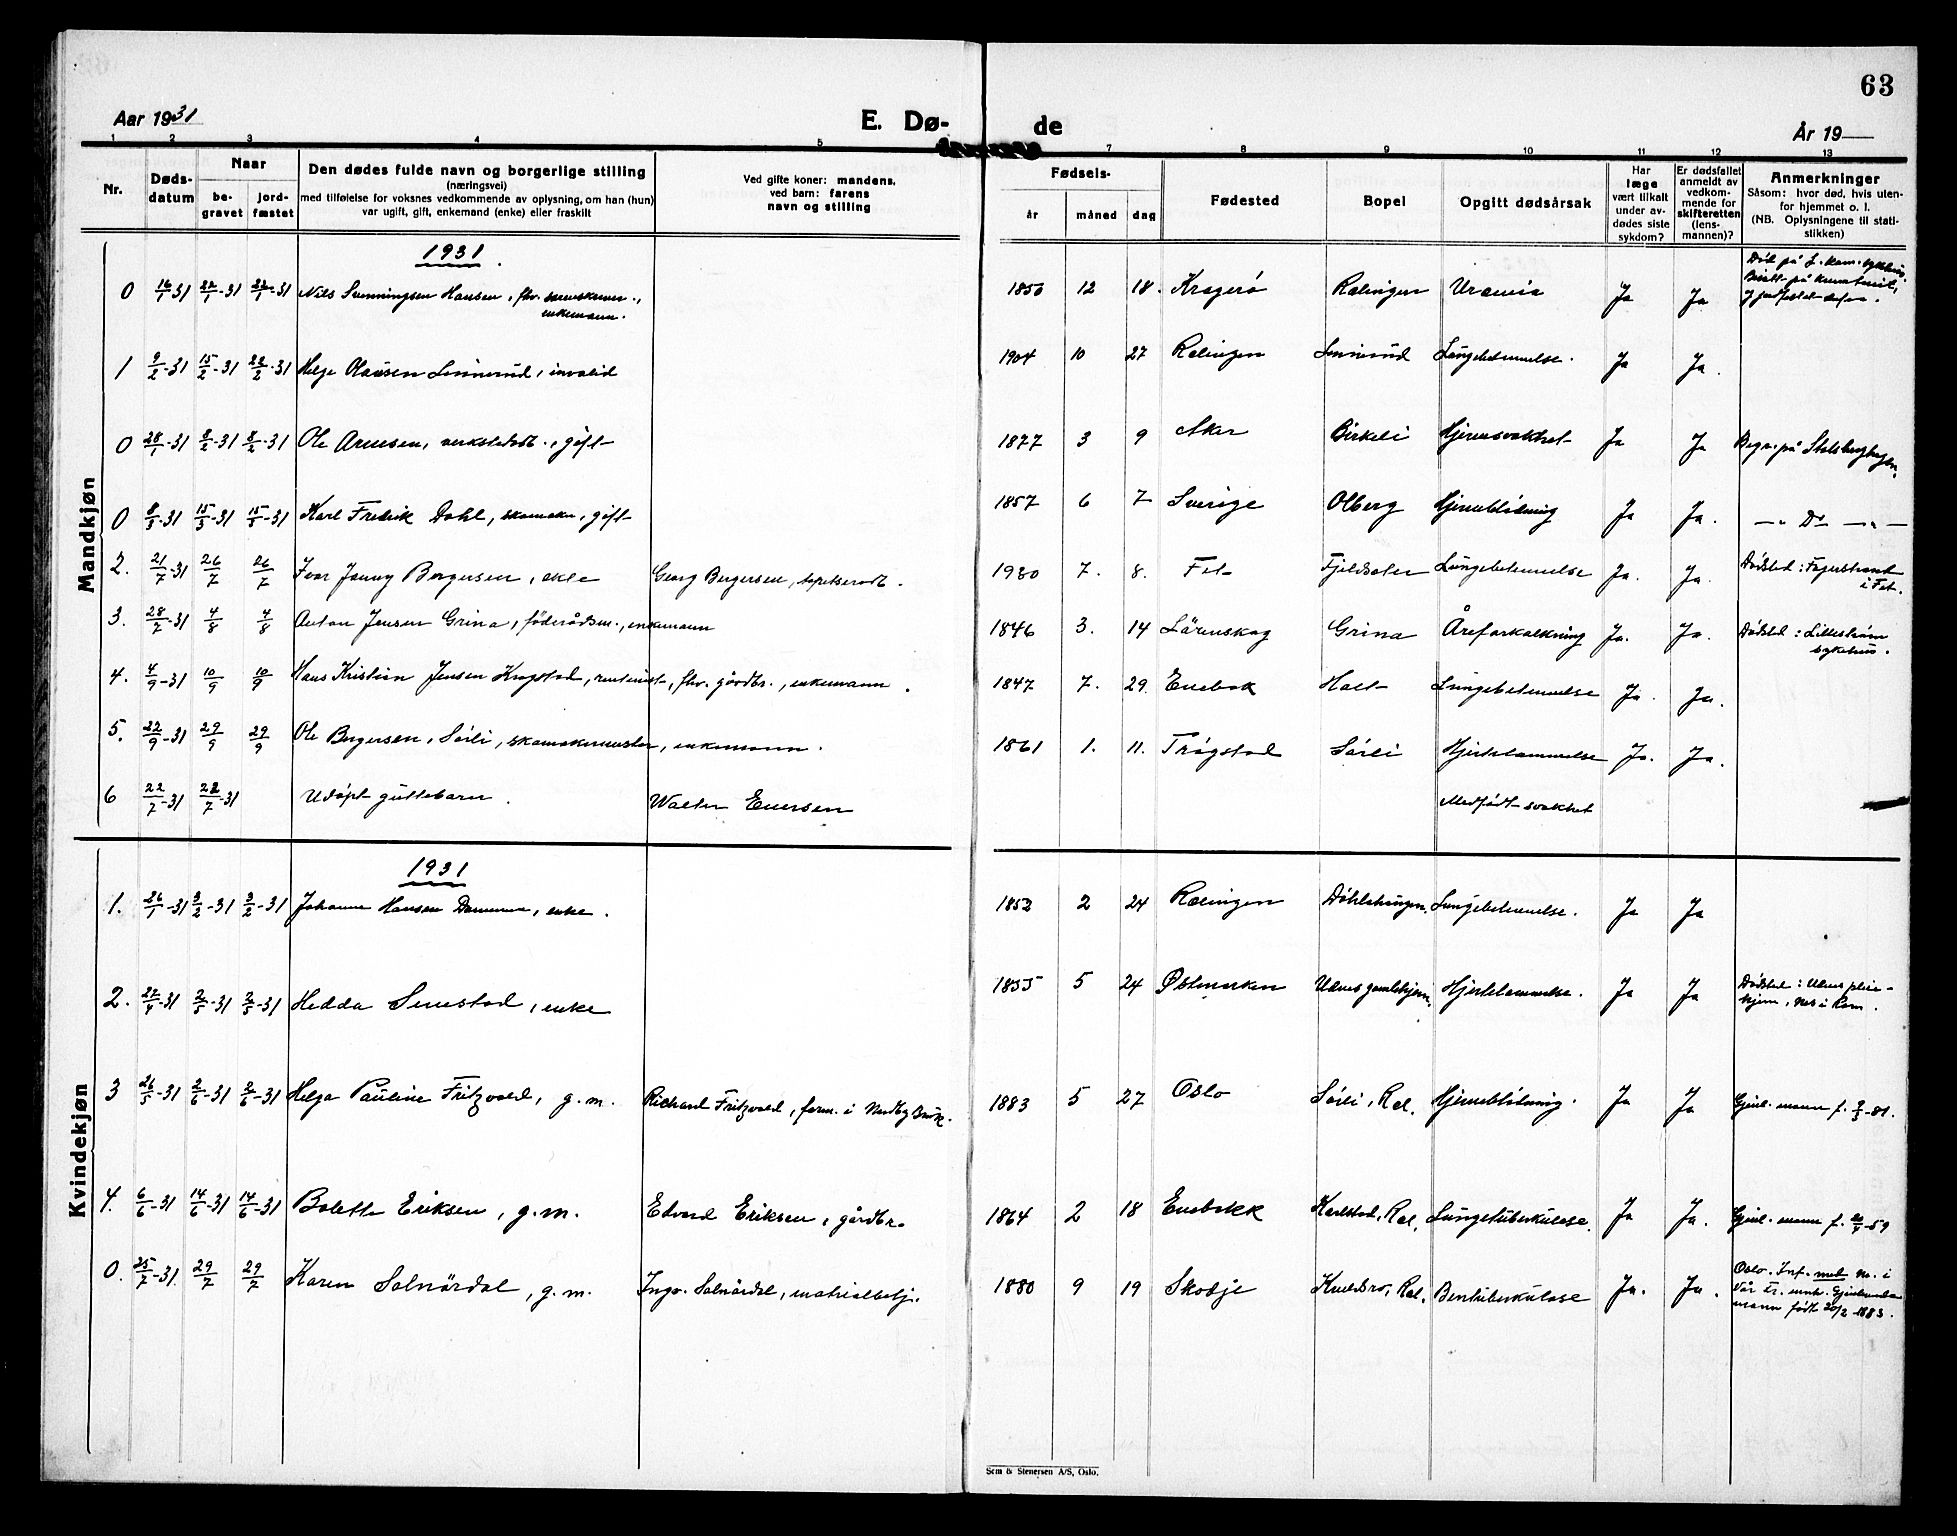 63
Aar 1931
E. Dø-
de
År 19
1 2 3 4 5 7 8 9 10 11 12 13
Nr.
Døds-
datum
Naar
be-
gravet
jord-
fæstet
Den dødes fulde navn og borgerlige stilling
(næringsvei)
med tilføielse for voksnes vedkommende av oplysning, om han (hun)
var ugift, gift, enkemand (enke) eller fraskilt
Ved gifte koner: mandens,
ved barn: farens
navn og stilling
Fødsels-
år
måned
dag
Fødested
Bopel
Opgitt dødsårsak
Har
læge
vært tilkalt
under av-
dødes siste
sykdom?
Er dødsfallet
anmeldt av
vedkom-
mende for
skifteretten
(lens-
mannen)?
Anmerkninger
Såsom: hvor død, hvis uten-
for hjemmet o. l.
(NB. Oplysningene til stati-
stikken)
Mandkjøn
1931
0 16/1-31 22/1-31 22/1-31 Nils Svenningsen Hansen, fhv.
enkemann. 1850 12 18. Kragerø Rælingen Uræmia Ja Ja
1 9/2-31 15/2-31 22/2-31 Helge Olausen Linnerud, invalid 1904 10 27 Rælingen Linnerud Lungebetennelse. Ja Ja.
0 28/1-31 8/2-31 8/2-31 Ole Arnesen, verkstedarb., gift 1877 3 9 Aker Birkeli Hjernesvakhet Ja Ja Begr. på
0 8/5-31 15/5-31 15/5-31 Karl Fredrik Dahl, skomaker, gift 1857 6 7 Sverige Olberg Hjerneblödning Ja Ja. —„ Do —„—
2. 21/7-31 26/7 26/7 Ivar Jonny Bergersen, ekte Georg Bergersen, tapetserarb. 1930 7. 8. Fet Fjeldsæter Lungebetennelse Ja. Ja. Dødsted: Fagerstrand
i Fet.
3. 28/7-31 4/8 4/8 Anton Jensen Grina, föderådsm., enkemann 1846 3. 14 Lörenskog Grina Åreforkalkning Ja. Ja. Dødsted: Lillestrøm
sykehus.
4. 4/9-31 10/9 10/9 Hans Kristian Jensen Kogstad, rentenist, fhv. gårdbr., enkemann. 1847 7. 29. Enebak Holt Lungebetennelse Ja. Ja.
5. 22/9-31 29/9 29/9 Ole Bergersen, Sörli, skomakermester, enkemann. 1861 1. 11. Trögstad Sörli Hjertelammelse Ja. Ja.
6 22/7-31 28/7-31 Udöpt guttebarn. Walter Enersen Medfödt svakhet
Kvindekjøn
1931
1. 26/1-31 3/2-31 3/2-31 Johanne Hansen, enke. 1853 2 24 Rælingen Lungebetennelse. Ja Ja
2. 27/4-31 2/5-31 2/5-31 Hedda Smestad, enke 1855 5 24 Østmarken Udnes gamlehjem. Hjertelammelse. Ja Ja Dødsted: Udnes pleie-
hjem, Nes i Rom.
3 26/5-31 2/6-31 2/6-31 Helga Pauline Fritzvold, g.m. Richard Fritzvold, form. i Nordby Bruk. 1883 5 27 Oslo Sörli, Ræl. Hjerneblödning. Ja Ja Gjenl. mann f. 9/3-81.
4. 6/6-31 14/6-31 14/6-31 Bolette Eriksen, g.m. Edvard Eriksen, gårdbr. 1864 2 18 Enebakk Karlstad, Ræl. Lungetuberkulose. Ja Ja. Gjenl. mann f. 20/4-59
0. 25/7-31. 29/7 29/7 Karen Solnördal, g.m. Ingv. Solnördal, materialbetj. 1880 9 19 Skodje Ræl. Bentuberkulose Ja. Ja. Oslo. Inf. med No. i
Vår Fr. menh. Gjenlevende
mann født 20/2 1883.
Sem & Stenersen A/S, Oslo.